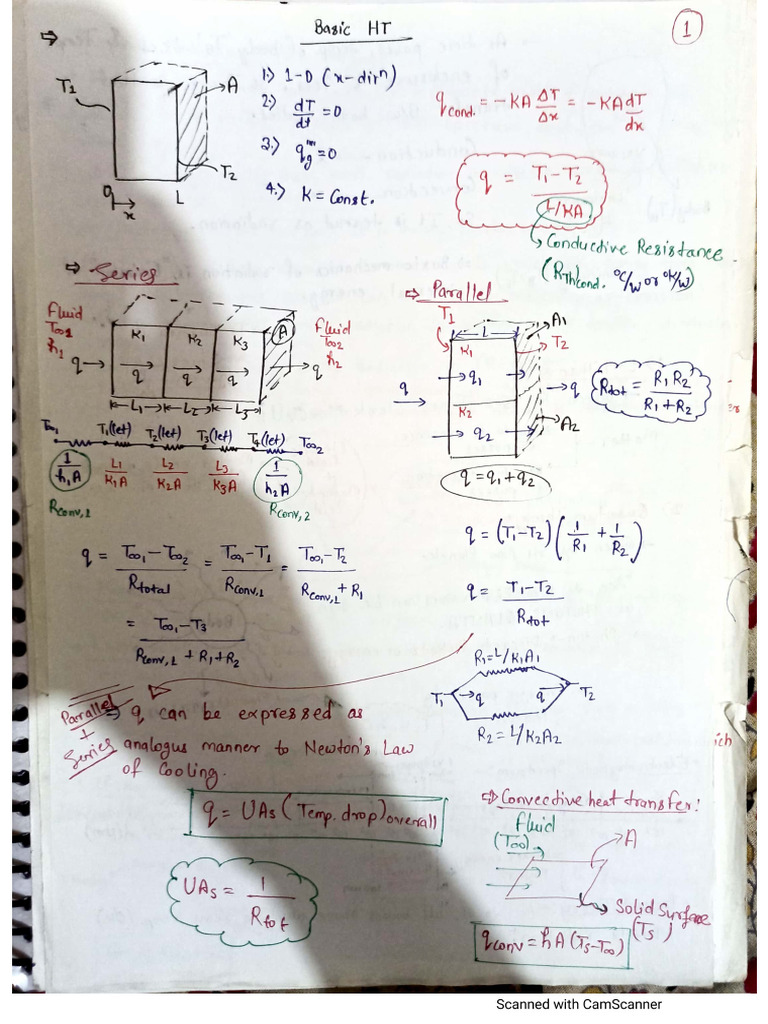 Basic HT
1
⇒
T1
A
T2
0
x
L
1.) 1-D (x-dirⁿ)
2.) dT/dt = 0
3.) q_g''' = 0
4.) K = Const.
q_cond. = -KA ΔT/Δx = -KA dT/dx
q = (T1-T2)/(L/KA)
↳ Conductive Resistance
(R_th)cond. °C/W or °K/W)
⇒ Series
Fluid
T∞1
h1
q →
K1 K2 K3
A
q q q
L1 L2 L3
Fluid
T∞2
h2
→ q
T∞1 T1(let) T2(let) T3(let) T4(let) T∞2
1/h1A L1/K1A L2/K2A L3/K3A 1/h2A
Rconv,1 Rconv,2
q = (T∞1-T∞2)/Rtotal = (T∞1-T1)/Rconv,1 = (T∞1-T2)/(Rconv,1+R1)
= (T∞1-T3)/(Rconv,1+R1+R2)
⇒ Parallel
T1
L
A1
K1
T2
q
q1
→ q
K2
q2
A2
Rtot = R1R2/(R1+R2)
q = q1+q2
q = (T1-T2)(1/R1 + 1/R2)
q = (T1-T2)/Rtot
R1=L/K1A1
T1 →q q→ T2
R2=L/K2A2
Parallel
+
Series
⇒ q can be expressed as
analogus manner to Newton's Law
of Cooling.
q = UAs (Temp. drop)overall
UAs = 1/Rtot
⇒ Convective heat transfer:
fluid
(T∞)
A
Solid Surface
(Ts)
qconv = hA(Ts-T∞)
ich
Scanned with CamScanner